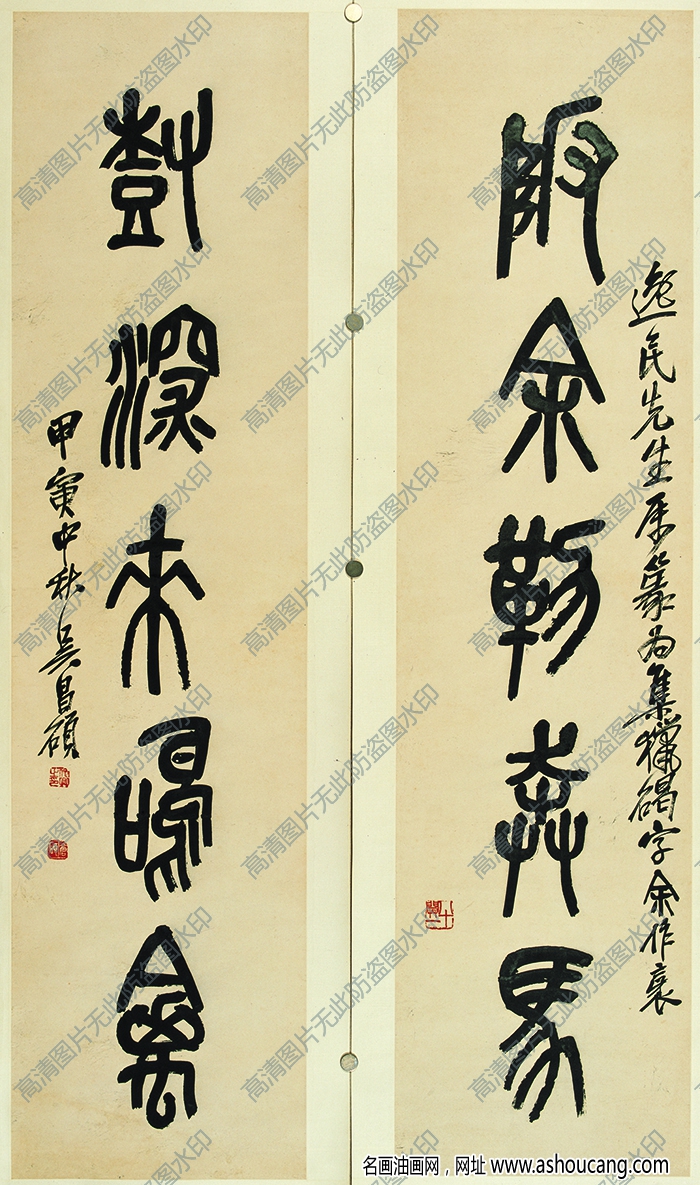 阪余勒奔馬
逸民先生属篆为集獵碣字余作衺
樹深來鳴禽
甲寅中秋吴昌碩
高清图片无此防盗图水印
名画油画网，网址 www.ashoucang.com